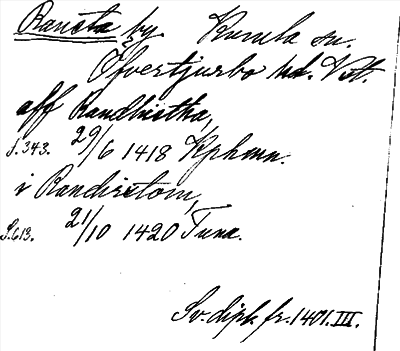 Ransta by. Kumla sn.
Öfvertjurbo hd. Vstl.
aff Randhistha,
S.343. 29/6 1418 Kphmn.
i Randhistom,
S.613. 21/10 1420 Tuna.
Sv. dipl. fr. 1401. III.